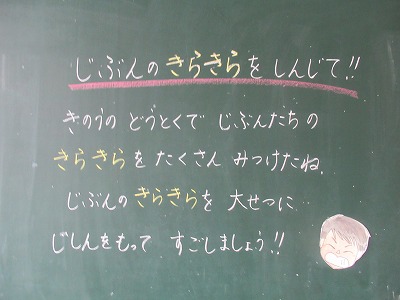 じぶんの きらきらを しんじて!!
きのうの どうとくで じぶんたちの
きらきらを たくさん みつけたね。
じぶんの きらきらを 大せつに
じしんをもって すごしましょう!!